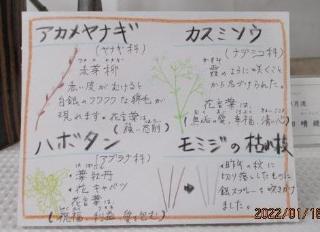 アカメヤナギ
(ヤナギ科)
赤芽柳
赤い皮がむけると
白銀のフワフワな綿毛が
現れます。
花言葉は、
カスミソウ
(ナデシコ科)
霞のように咲くこと
から名づけられた。
花言葉は、
ハボタン
(アブラナ科)
・葉牡丹
・花キャベツ
花言葉は、
モミジの枯れ枝
・昨年の秋に
切り落としたものに
銀スプレーを吹きかけ
ました。
2022/01/18